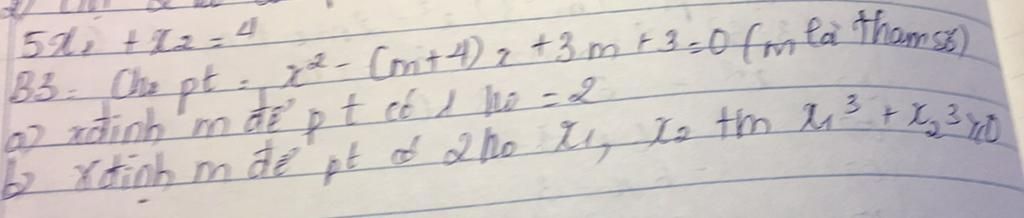 5x₁ + x₂ = 4
B3: Cho pt: x² - (m+4)x + 3m + 3 = 0 (m là tham số)
a) xđịnh m để pt có 1 no = 2
b) xđịnh m để pt có 2 no x₁, x₂ tm x₁³ + x₂³ ≥ 0